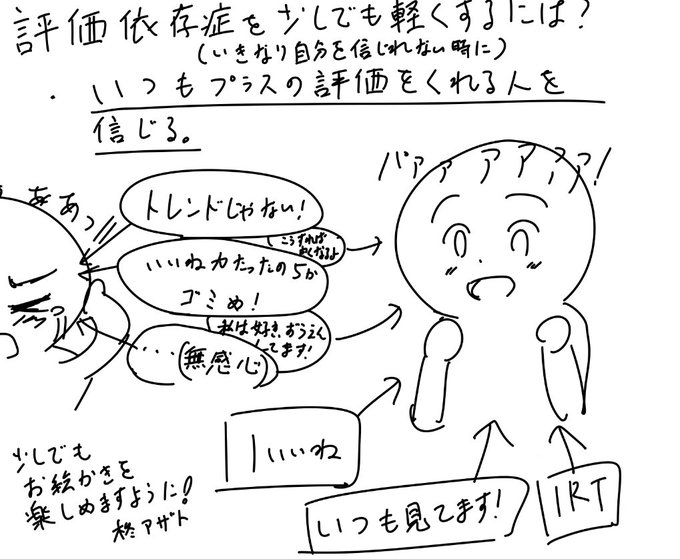 評価依存症を少しでも軽くするには？
(いきなり自分を信じれない時に)
・いつもプラスの評価をくれる人を
信じる。
パァァアアァァ!
あぁっ
トレンドじゃない!
こうすれば
よくなるよ
いいね力たったの5か
ゴミめ!
私は好き、おうえん
してます!
…(無感心)
1いいね
いつも見てます!
1RT
少しでも
お絵かきを
楽しめますように!
柊アザト